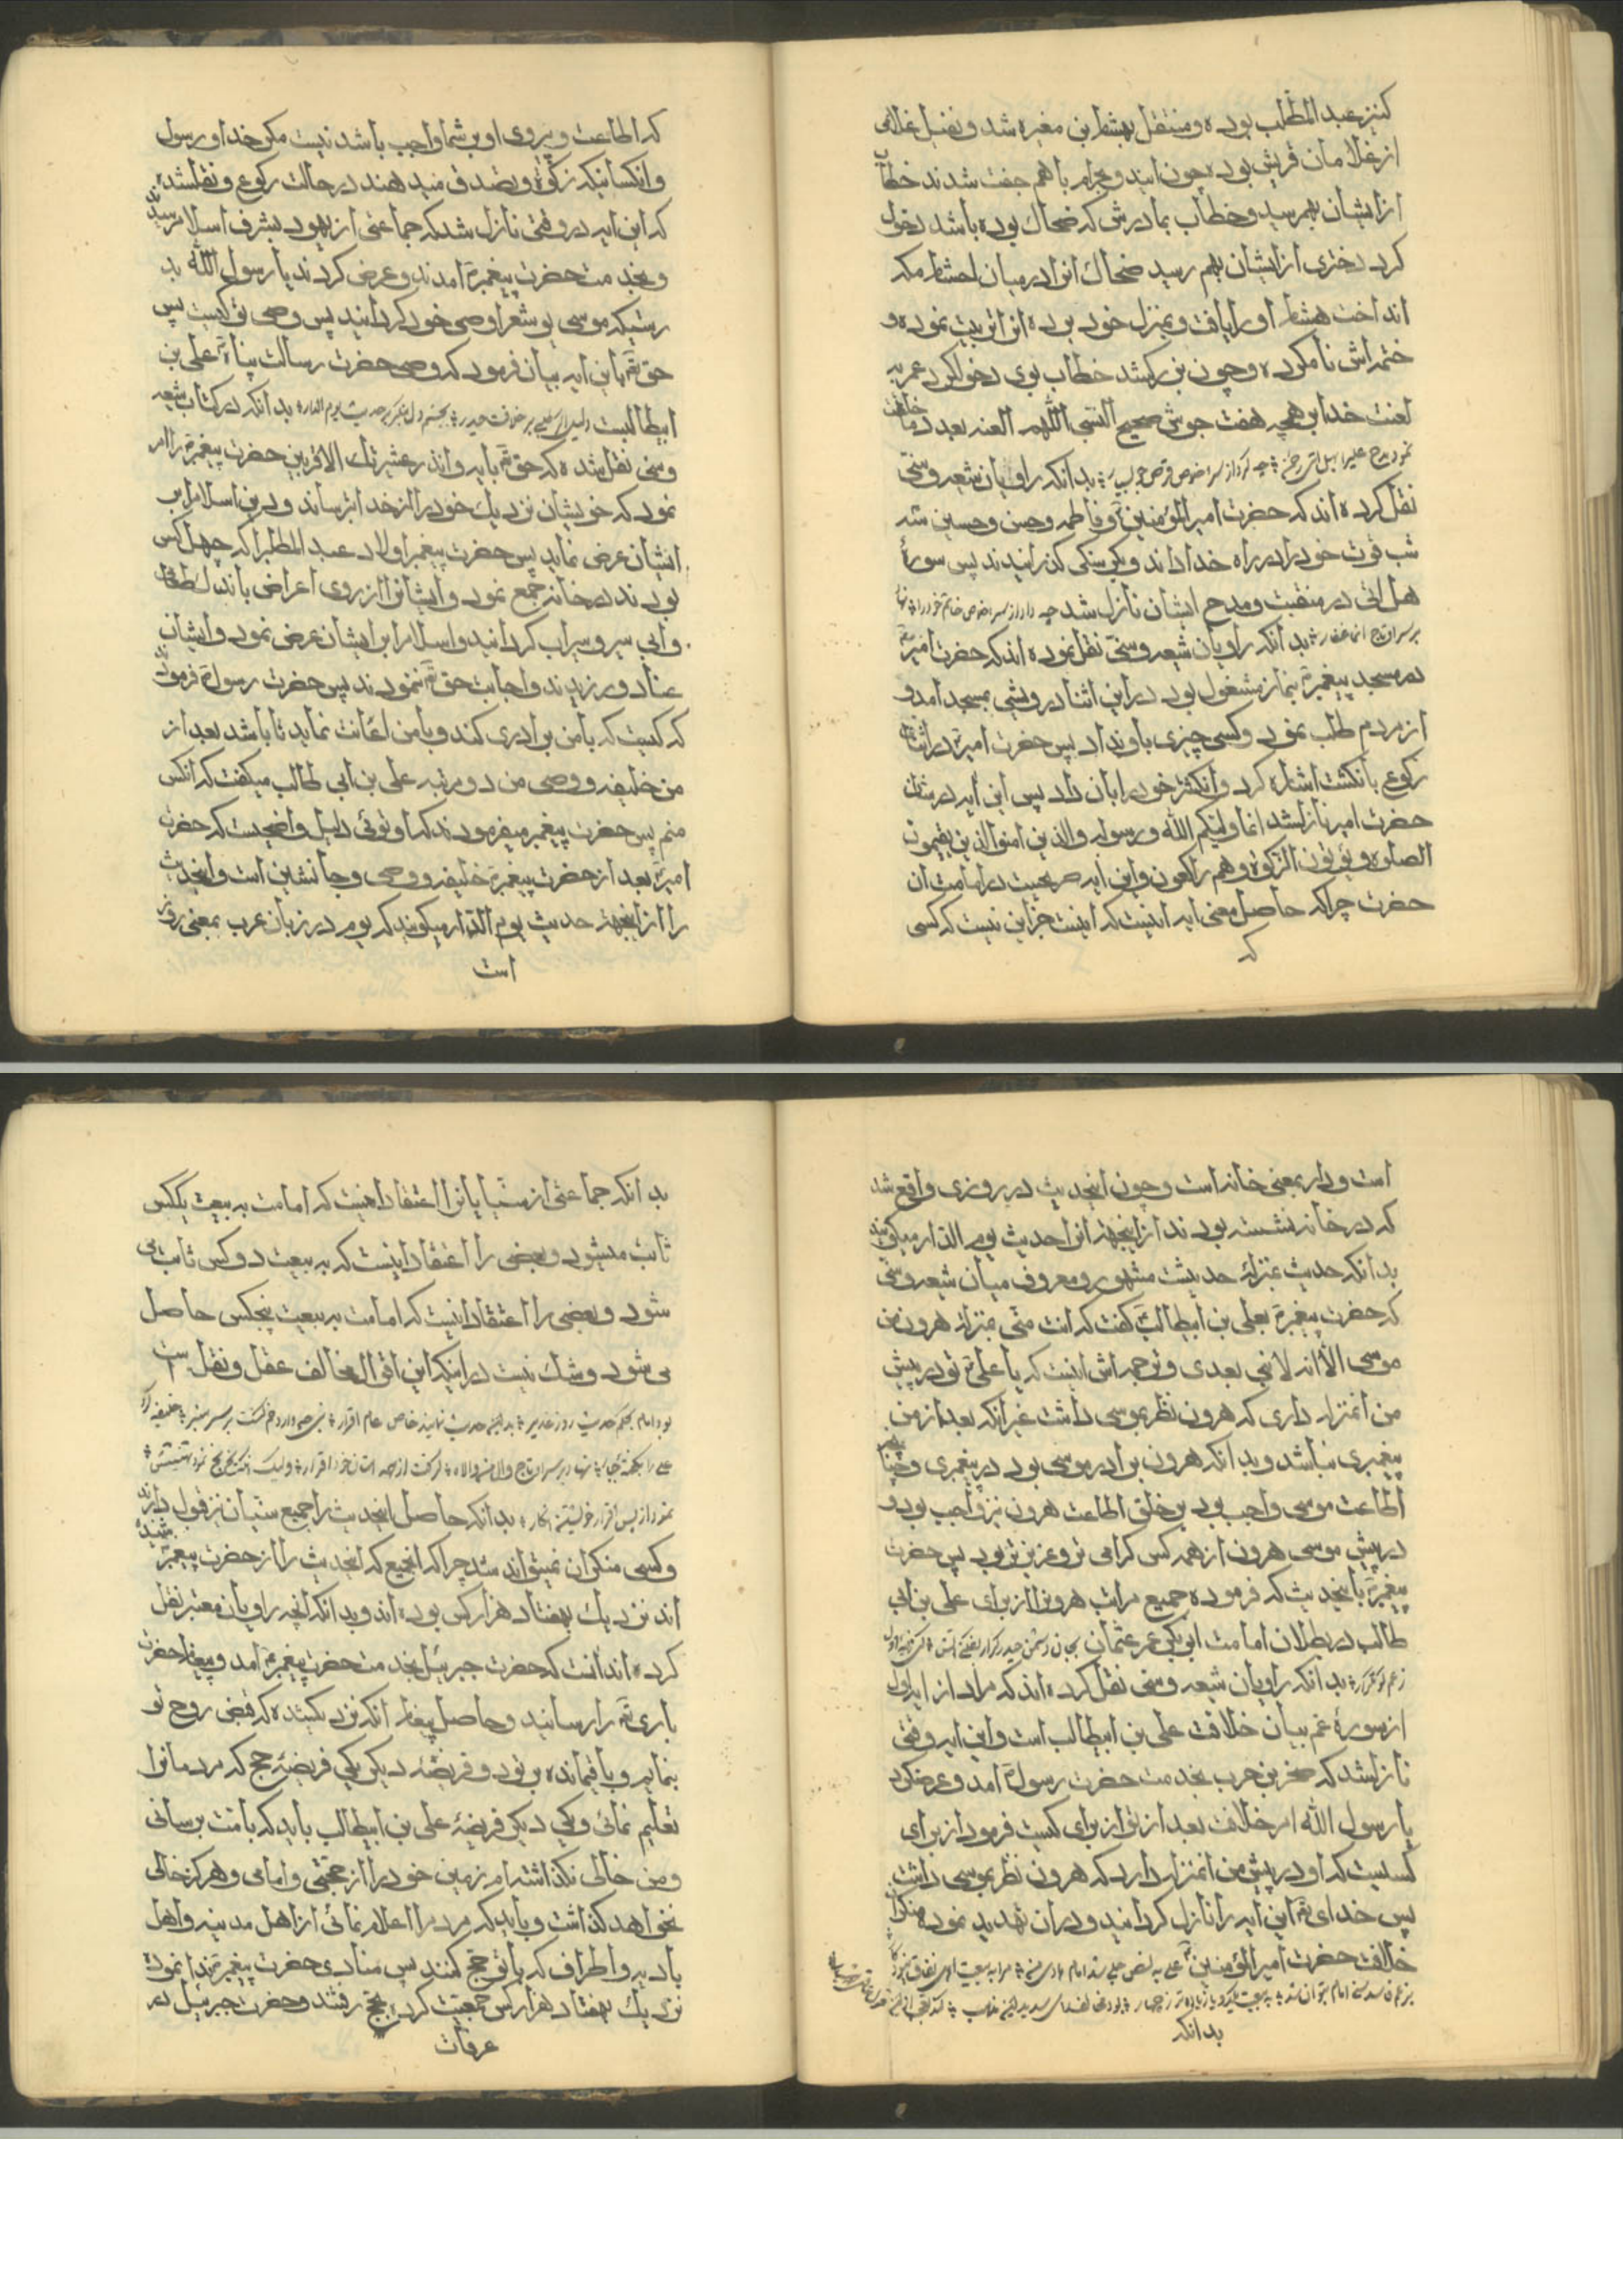 کنیز عبد المطلب بوده و منتقل بهشام بن مغیره شد و نفیل غلامی
از غلامان قریش بوده چون با هم جفت شدند خطاب
از ایشان بهم رسید و خطاب بمادرش که ضحاک بوده باشد دخول
کرد دختری از ایشان بهم رسید ضحاک انرا در میان احشام مکه
انداخت هشام او را یافت و بمنزل خود برده انرا تربیت نموده و
ختمه اش نام کرده و چون بزرک شد خطاب بوی دخول کرد عمر به
لعنت خدا هفت جوش صحیح النسبی اللهم العنه بعدد ما
بدانکه راویان شیعه و سنی
نقل کرده اند که حضرت امیر المؤمنین و فاطمه و حسن و حسین سه
شب قوت خود را در راه خدا داند و بکرسنکی کذرانیدند پس سورهٔ
هل اتی در منقبت و مدح ایشان نازل شد
بدانکه راویان شیعه و سنی نقل نموده اند که حضرت امیر
در مسجد پیغمبر بنماز مشغول بود در این اثنا درویشی بمسجد امد و
از مردم طلب نمود و کسی چیزی باو نداد پس حضرت امیر در اثنای
رکوع بانکشت اشاره کرد و انکشتر خود را بان داد پس این ایه در شان
حضرت امیر نازلشد انما ولیکم الله و رسوله والذین امنوا الذین یقیمون
الصلوة و یؤتون الزکوة وهم راکعون و این ایه صریحیست در امامت ان
حضرت چرا که حاصل معنی ایه اینست که اینست جز این نیست که کسی
که
که اطاعت و پیروی او بر شما واجب باشد نیست مکر خدا و رسول
و انکسانیکه زکوة و تصدق میدهند در حالت رکوع و نقلشده
که این ایه در وقتی نازل شد که جماعتی از یهود بشرف اسلام رسیدند
و بخدمت حضرت پیغمبر امدند و عرض کردند یا رسول الله بد
رستیکه موسی یوشع را وصی خود کردانید پس وصی تو کیست پس
حق تع باین ایه بیان فرمود که وصی حضرت رسالت پناه علی بن
ابیطالبست بدانکه در کتاب شیعه
و سنی نقل شده که حق تع بایه و انذر عشیرتک الاقربین حضرت پیغمبر را امر
نمود که خویشان نزدیک خود را از خدا بترساند و دین اسلام را بر
انشان عرض نماید پس حضرت پیغمبر اولاد عبد المطلب را که چهل کس
بودند در خانه جمع نمود و ایشانرا از روی اعراض باندک طعام
و ابی سیر و سیراب کردانید و اسلام را بر ایشان عرض نمود و ایشان
عناد ورزیدند و اجابت حق تع ننمودند پس حضرت رسول فرمود
که کیست که با من برادری کند و با من اعانت نماید تا باشد بعد از
من خلیفه و وصی من دو مرتبه علی بن ابی طالب میکفت که انکس
منم پس حضرت پیغمبر میفرمودند که او توئی دلیل واضحیست که حضرت
امیر بعد از حضرت پیغمبر خلیفه و وصی و جانشین است و اینحدیث
را از اینجهة حدیث یوم الدار میکویند که یوم در زبان عرب بمعنی روز
است
است و دار بمعنی خانه است و چون اینحدیث در روزی واقع شد
که در خانه نشسته بودند از اینجهة انرا حدیث یوم الدار میکویند
بدانکه حدیث منزلة حدیثیست مشهور و معروف میان شیعه و سنی
که حضرت پیغمبر بعلی بن ابیطالب کفت که انت منی بمنزلة هرون من
موسی الا انه لا نبی بعدی و ترجمه اش اینست که یا علی تو در پیش
من انمنزله داری که هرون نظر بموسی داشت غیر انکه بعد از من
پیغمبری نمیباشد و بدانکه هرون برادر موسی بود در پیغمبری و چنانچه
اطاعت موسی واجب بود بر خلق اطاعت هرون نیز واجب بود و
در پیش موسی هرون از همه کس کرامی تر و عزیزتر بود پس حضرت
پیغمبر باینحدیث که فرموده جمیع مراتب هرونرا از برای علی بن ابی
طالب در بطلان امامت ابی بکر عمر عثمان
بدانکه راویان شیعه و سنی نقل کرده اند که مراد از ایه اول
از سورهٔ عم بیان خلافت علی بن ابیطالب است و این ایه وقتی
نازلشد که صخر بن حرب بخدمت حضرت رسول امد و عرضکرد
یا رسول الله امر خلافت بعد از تو از برای کیست فرمود از برای
کسیست که او در پیش من انمنزله دارد که هرون نظر بموسی داشت
پس خدای تع این ایه را نازل کردانید و در ان تهدید نموده منکران
خلافت حضرت امیر المؤمنین
بدانکه
بدانکه جماعتی از سنیانرا اعتقاد اینست که امامت به بیعت یککس
ثابت میشود و بعضی را اعتقاد اینست که به بیعت دو کس ثابت می
شود و بعضی را اعتقاد اینست که امامت به بیعت پنجکس حاصل
می شود و شک نیست در اینکه این اقوال مخالف عقل و نقل است
بدانکه حاصل اینحدیث را جمیع سنیان نیز قبول دارند
و کسی منکر ان نمیتواند شد چرا که انجمع که اینحدیث را از حضرت پیغمبر شنیده
اند نزدیک بهفتاد هزار کس بوده اند و بدانکه انچه راویان معتبر نقل
کرده اند انست که حضرت جبرئیل بخدمت حضرت پیغمبر امد و پیغام حضرت
باری تع را رسانید و حاصل پیغام انکه نزدیکشده که قبض روح تو
بنمایم و باقیمانده بر تو دو فریضه دیکر یکی فریضهٔ حج که مردمانرا
تعلیم نمائی و یکی دیکر فریضهٔ علی بن ابیطالب باید که بامت برسانی
و من خالی نکذاشته ام زمین خود را از حجتی و امامی و هرکز خالی
نخواهد کذاشت و باید که مردم را اعلام نمائی از اهل مدینه و اهل
بادیه و اطراف که با تو حج کنند پس منادی حضرت پیغمبر ندا نمود
نزدیک بهفتاد هزار کس جمعیت کرده بحج رفتند و حضرت جبرئیل در
عرفات